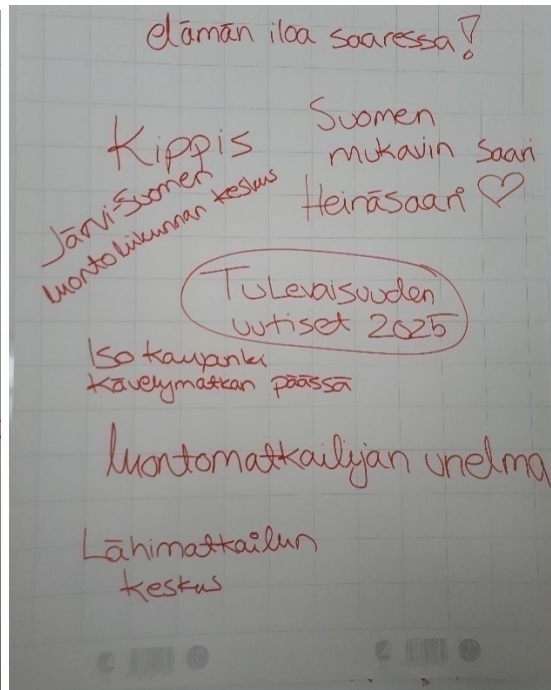 elämän iloa saaressa!
Kippis
Suomen
mukavin saari
Heinäsaari ♡
Järvi-Suomen
luontoliikunnan keskus
Tulevaisuuden
uutiset 2025
Iso kaupunki
kävelymatkan päässä
luontomatkailijan unelma
Lähimatkailun
keskus